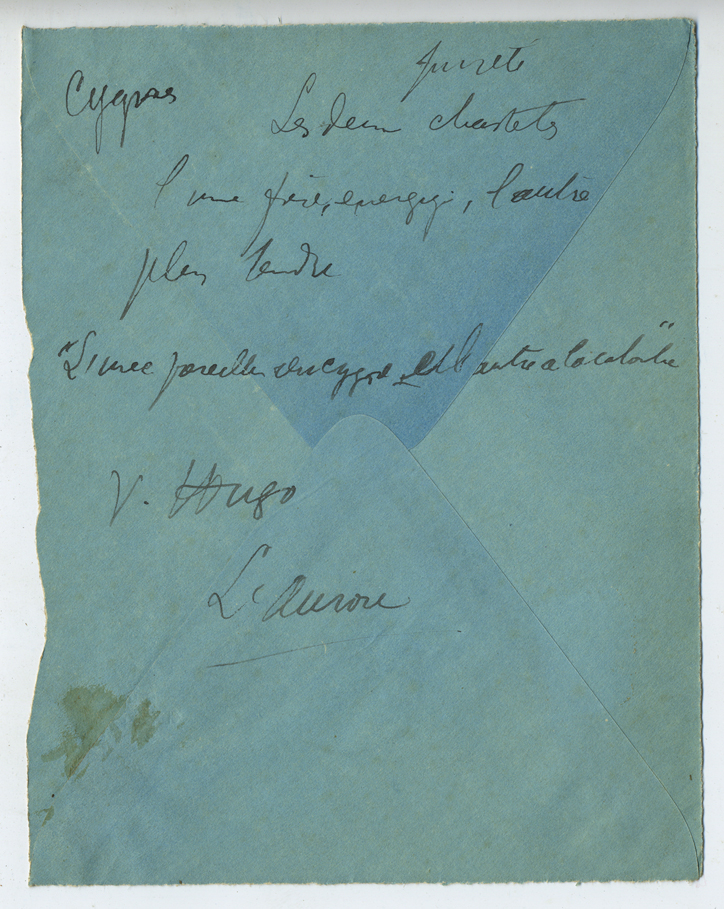 pureté
Cygnes
Les deux chastetés
l'une fière, energiq, l'autre
plus tendre
"L'une pareille au cygne et l'autre à la colombe"
V. Hugo
L'Aurore